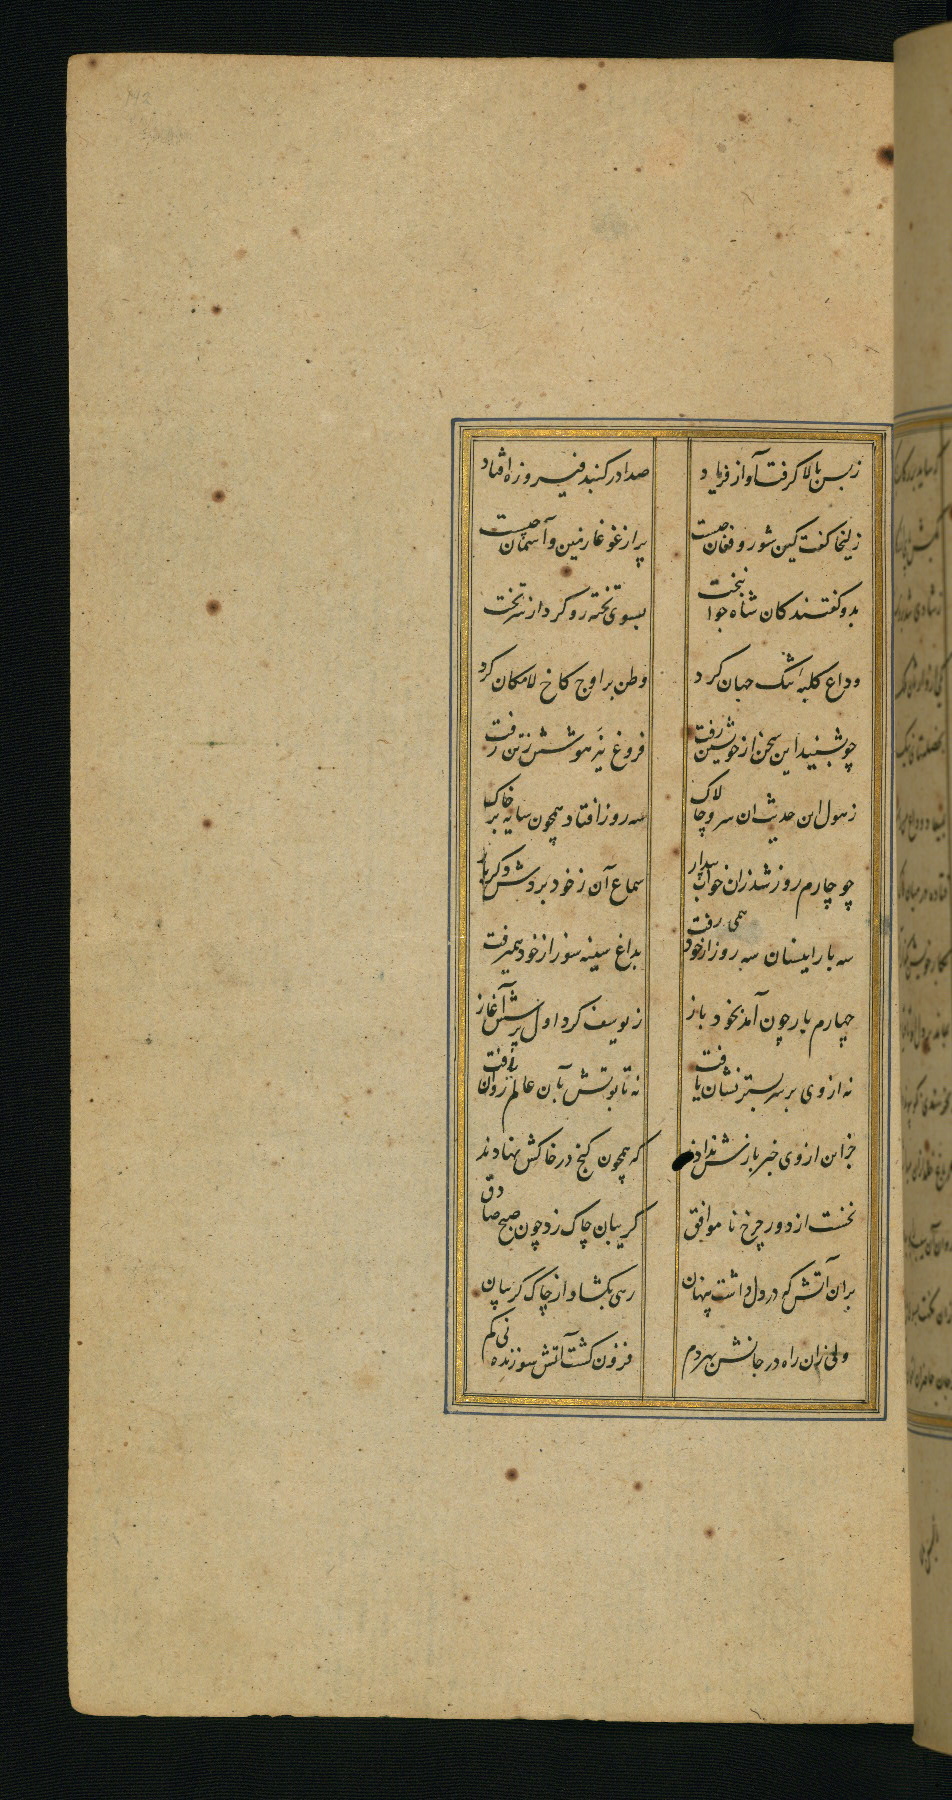 زبس بالا گرفت آواز فریاد صدا در گنبد فیروزه افتاد
زلیخا گفت کین شور و فغان چیست پر از غوغا زمین و آسمان چیست
بدو گفتند کان شاه جوانبخت بسوی تخته رو کرد از سر تخت
وداع کلبه تنگ جهان کرد وطن بر اوج کاخ لامکان کرد
چو بشنید این سخن از خویشتن رفت فروغ نیر هوشش ز تن رفت
ز هول این حدیث آن سرو چالاک سه روز افتاد همچون سایه بر خاک
چو چارم روز شد زان خواب بیدار سماع آن ز خود بردش دگر بار
سه بار اینسان سه روز از خود همی رفت بداغ سینه سوز از خود همیرفت
چهارم بار چون آمد بخود باز ز یوسف کرد اول پرسش آغاز
نه از وی بر سر بستر نشان یافت نه تابوتش بآن عالم روان یافت
جز این از وی خبر بازش ندادند که همچون گنج در خاکش نهادند
نخست از دور چرخ ناموافق گریبان چاک زد چون صبح صادق
بران آتش که در دل داشت پنهان رهی بگشاد از چاک گریبان
ولی زان راه در جانش بهر دم فزون گشت آتش سوزنده نی کم